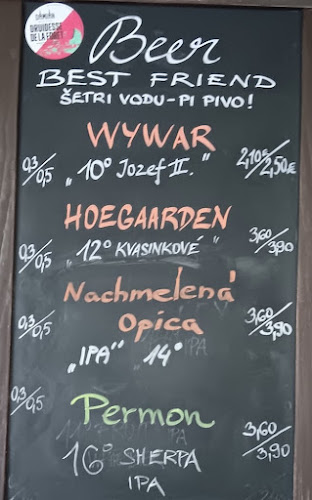 DRUIDESSE
DE LA FORÊT
Beer
BEST FRIEND
ŠETRI VODU - PI PIVO!
WYWAR
0,3/0,5 „10° Jozef II." 2,10€/2,50€
HOEGAARDEN
0,3/0,5 „12° KVASINKOVÉ" 3,60/3,90
Nachmelená
Opica
0,3/0,5 3,60/3,90
„IPA" 14°
0,3/0,5
Permon
3,60/3,90
16° SHERPA
IPA